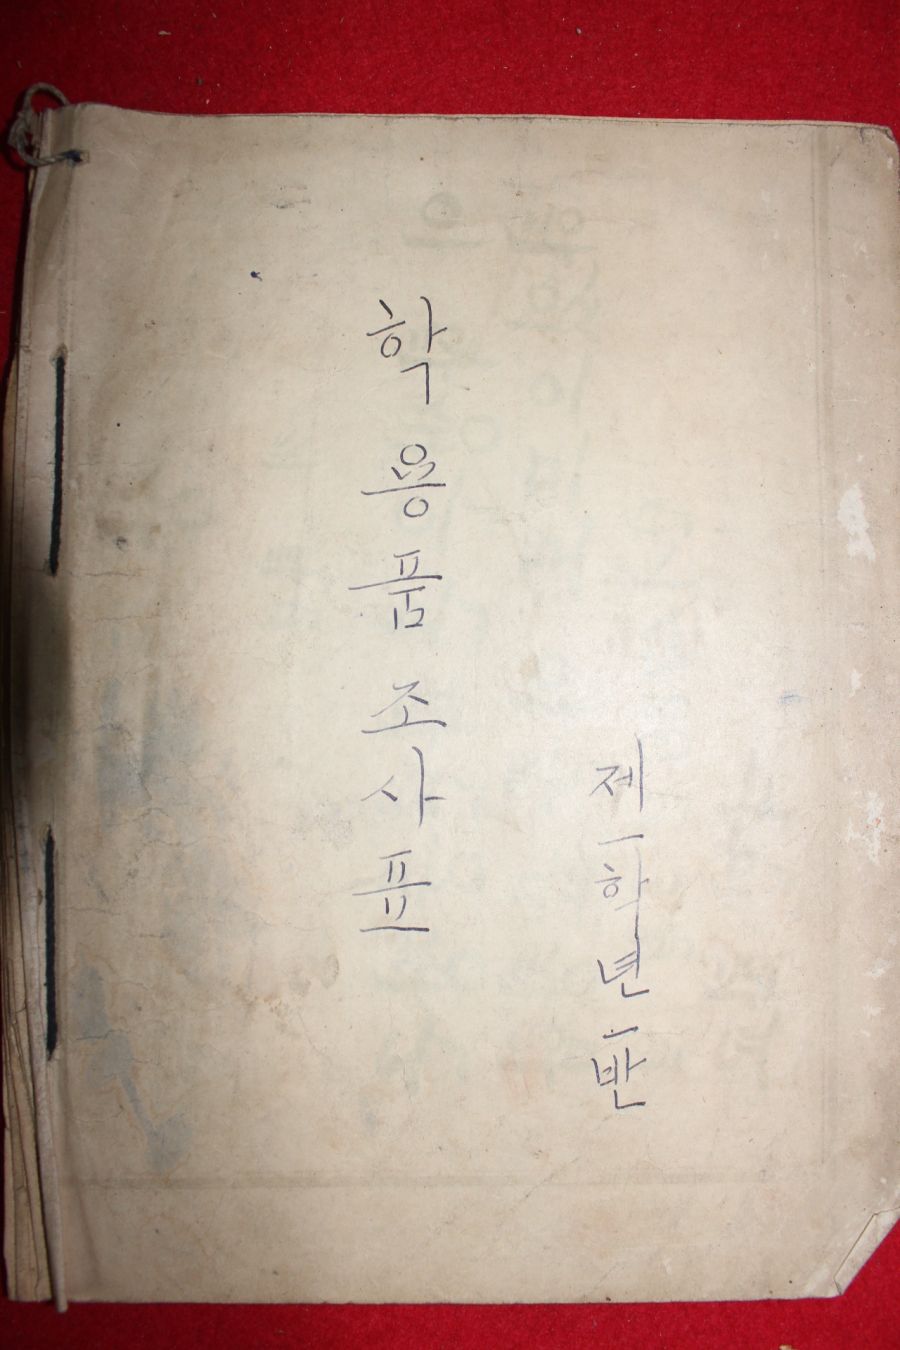 학용품조사표
제一학년一반